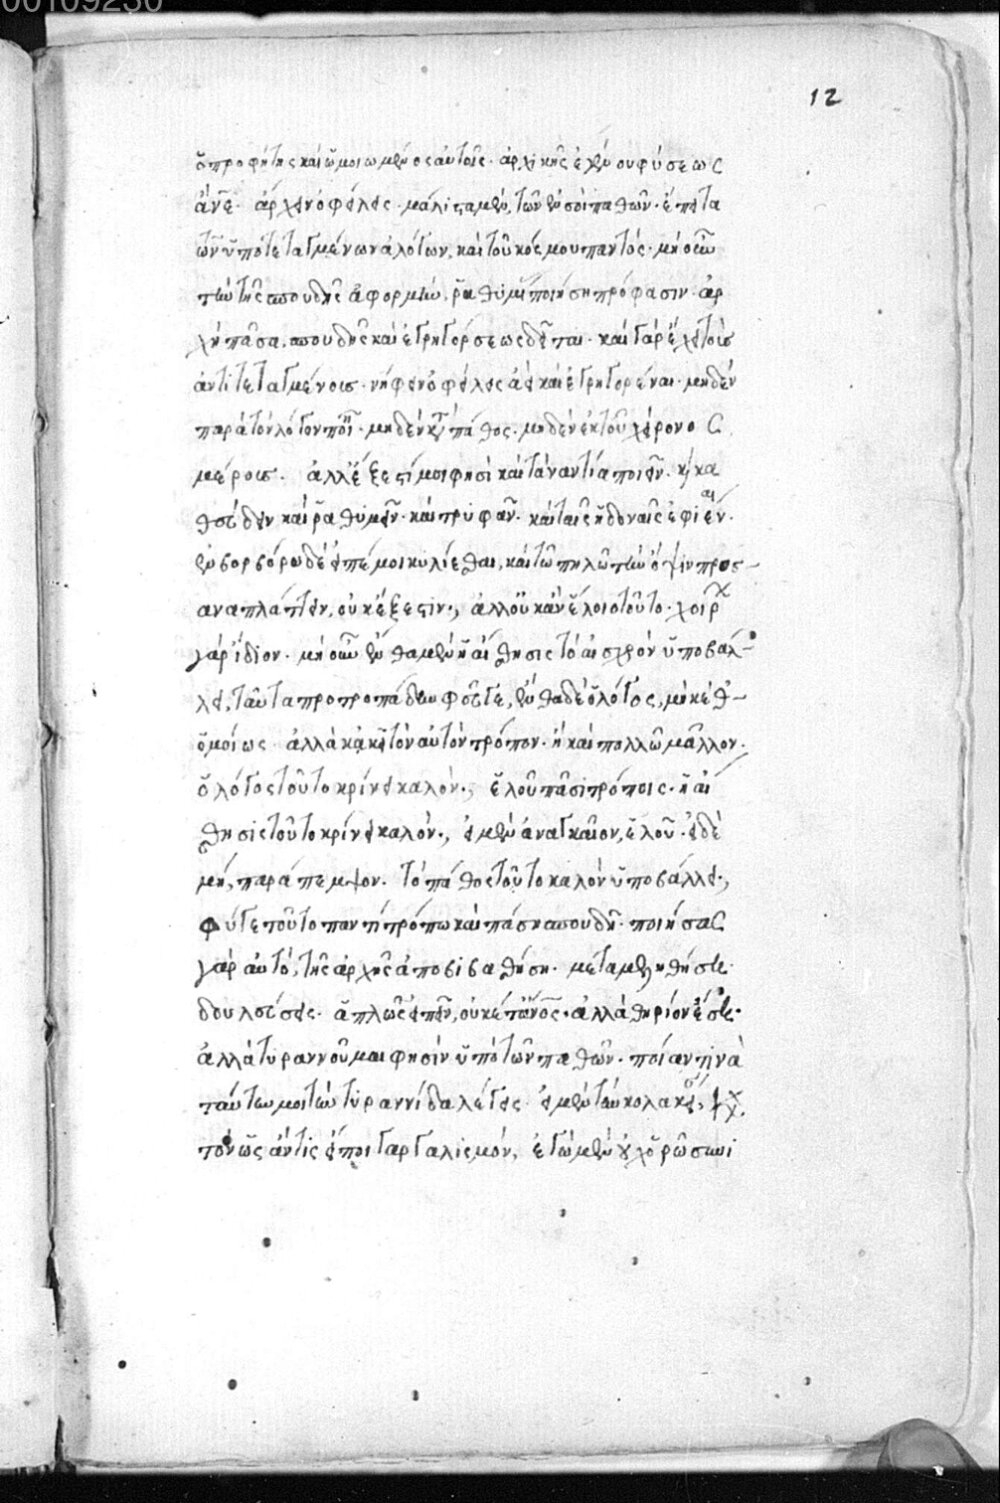 00109230
12
ὁ προφήτης καὶ ὡμοιωμένος αὐτοῖς. ἀρχικῆς ἐκ θ̅υ φύσεως
ἄνε. ἄρχειν ὀφείλεις. μάλιστα μὲν, τῶν ἐν σοὶ παθῶν. ἔπειτα
τῶν ὑποτεταγμένων ἀλόγων, καὶ τοῦ κόσμου παντός. μὴ οὖν
τὴν τῆς σπουδῆς ἀφορμὴν, ῥαθυμίας ποιήσῃ πρόφασιν. ἀρ
χὴ πᾶσα, σπουδῆς καὶ ἐγρηγόρσεως δεῖται. καὶ γὰρ ἔχει τοὺς
ἀντιτεταγμένους. νήφειν ὀφείλεις ἀεὶ καὶ ἐγρηγορέναι. μηδὲν
παρὰ τὸν λόγον ποιῇ. μηδὲν κατὰ πάθος. μηδὲν ἐκ τοῦ χείρονος
μέρους. ἀλλ' ἔξεστί μοι φησὶ καὶ τἀναντία ποιεῖν. καὶ κα
θεύδειν καὶ ῥαθυμεῖν. καὶ τρυφᾶν. καὶ ταῖς ἡδοναῖς ἐφιέναι.
ἐν βορβόρῳ δὲ εἰπέ μοι κυλίεσθαι, καὶ τῷ πηλῷ τὴν ὄψιν προσ-
αναπλάττειν, οὐκ ἔξεστιν., ἀλλ' οὐκ ἂν ἕλοιο τοῦτο. χοίρου
γὰρ ἴδιον. μὴ οὖν ἔνθα μὲν ἡ αἴσθησις τὸ αἰσχρὸν ὑποβάλ-
λει, ταῦτα προτροπάδην φεῦγε, ἔνθα δὲ ὁ λόγος, μὴ κέθ-
ὁμοίως. ἀλλὰ κἀκεῖ τὸν αὐτὸν τρόπον. ἢ καὶ πολλῷ μᾶλλον.
ὁ λόγος τοῦτο κρίνει καλόν., ἑλοῦ πᾶσι τρόποις. ἡ αἴ
σθησις τοῦτο κρίνει καλόν., εἰ μὲν ἀναγκαῖον, ἑλοῦ. εἰ δὲ
μὴ, παράπεμψον. τὸ πάθος τοῦτο καλὸν ὑποβάλλει.,
φύγε τοῦτο παντὶ τρόπῳ καὶ πάσῃ σπουδῇ. ποιήσας
γὰρ αὐτό, τῆς ἀρχῆς ἀποβιβασθήσῃ. μεταμεληθήσει.
δουλεύσεις. ἁπλῶς εἰπεῖν, οὐκέτι ἄν̅ος. ἀλλὰ θηρίον ἔσει.
ἀλλὰ τυραννοῦμαι φησὶν ὑπὸ τῶν παθῶν. ποίαν τινὰ
ταύτην μοι τὴν τυραννίδα λέγεις. εἰ μὲν τὴν κολακεί,
τὸν ὡς ἄν τις εἴποι γαργαλισμόν, ἐγὼ μὲν οὐχ ὁρῶ σωι